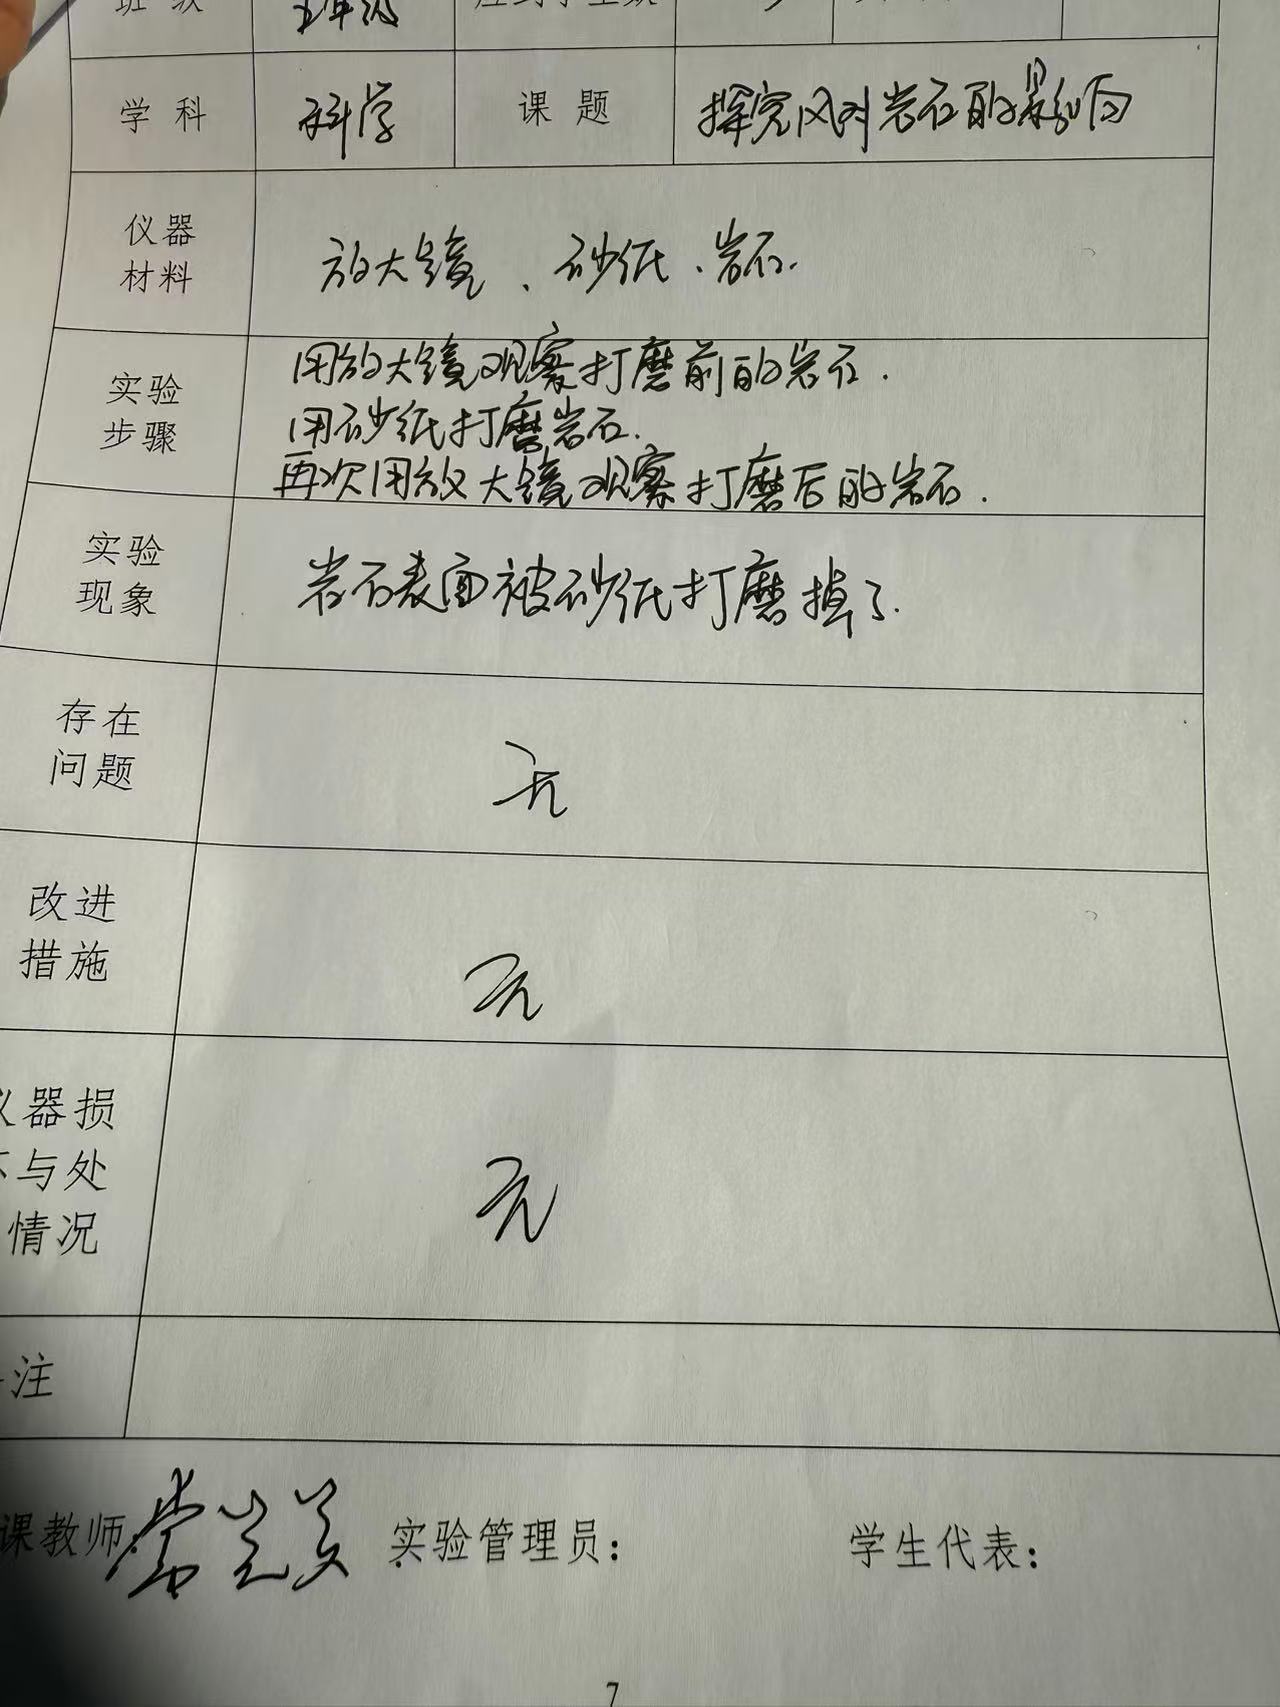 班级 五年级 应到学生数
学科 科学 课题 探究风对岩石的影响
仪器材料 放大镜、砂纸、岩石.
实验步骤 用放大镜观察打磨前的岩石.
用砂纸打磨岩石.
再次用放大镜观察打磨后的岩石.
实验现象 岩石表面被砂纸打磨掉了.
存在问题 无
改进措施 无
仪器损
坏与处
情况 无
注
课教师: 实验管理员: 学生代表:
7